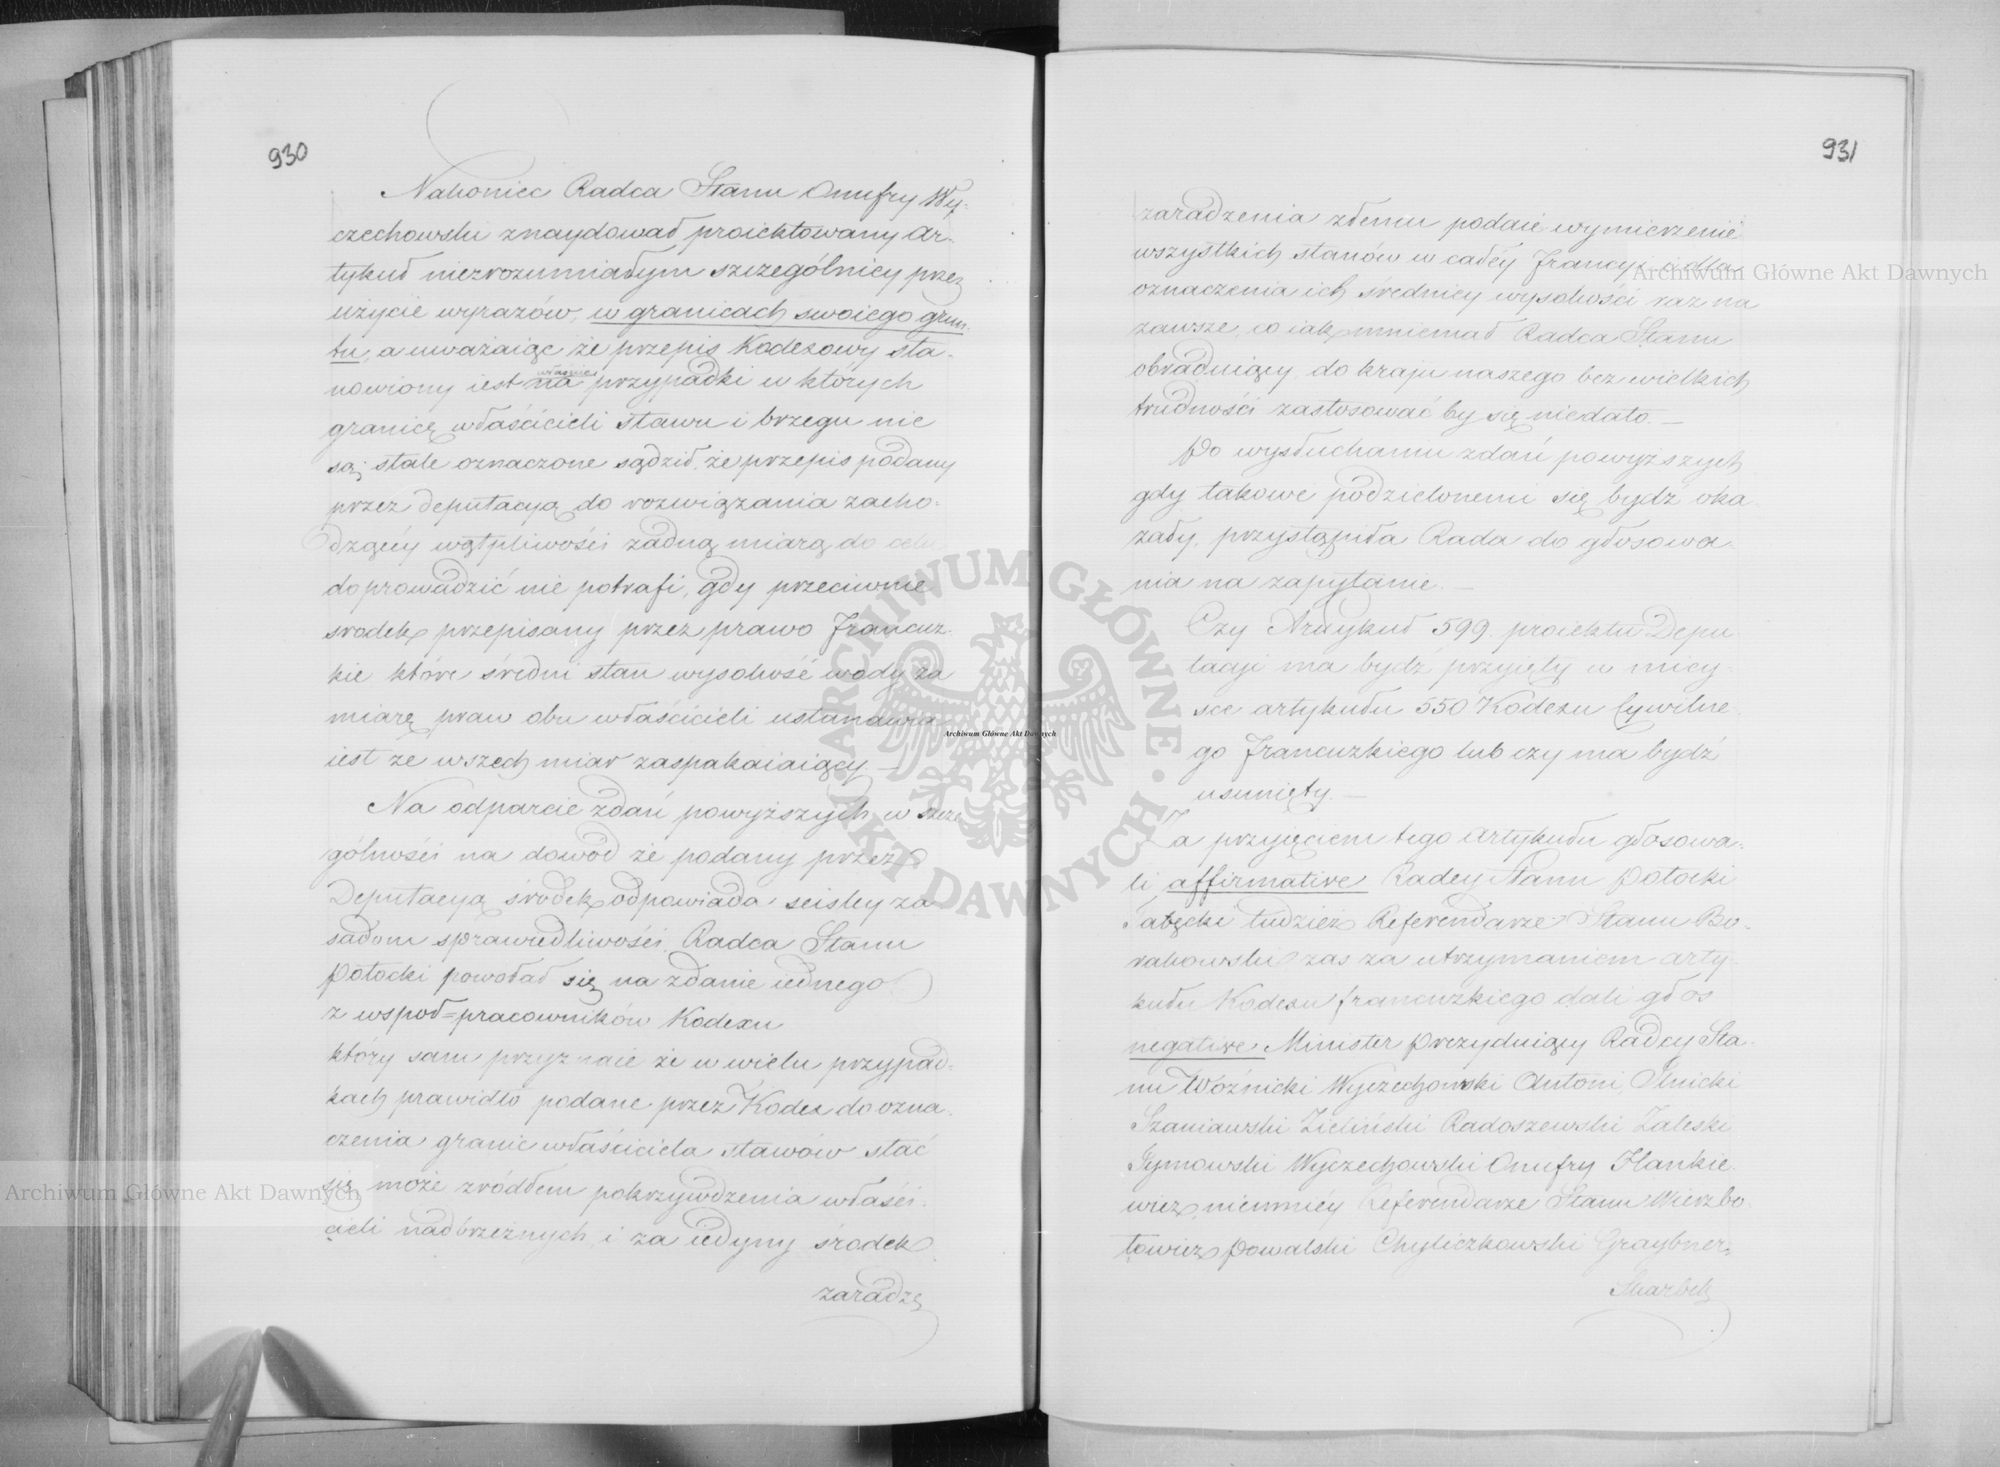 930
Nakoniec Radca Stanu Onufry Wy-
czechowski znaydował proiektowany ar-
tykuł niezrozumiałym szczególnicy przez
użycie wyrazów, w granicach swoiego grun-
tu, a uważaiąc że przepis Kodexowy sta-
nowiony iest właśnie na przypadki w których
granice właścicieli stawu i brzegu nie
są stale oznaczone sądził, że przepis podany
przez Deputacyą do rozwiązania zacho-
dzącéy wątpliwości żadną miarą do celu
doprowadzić nie potrafi, gdy przeciwnie
srodek przepisany przez prawo Francuz-
kie które średni stan wysokość wody za
miarę praw obu właścicieli ustanawia
iest ze wszech miar zaspakaiaiący. —
Na odparcie zdań powyższych w szcze
gólności na dowód że podany przez
Deputacyą środek odpowiada scisley za
sadom sprawiedliwości, Radca Stanu
Potocki powołał się na zdanie iednego
z wspoł=pracowników Kodexu
który sam przyznaie że w wielu przypad-
kach prawidło podane przez Kodex do ozna-
czenia granic właściciela stawów stać
się może zródłem pokrzywdzenia właści-
cieli nadbrzeżnych, i za iedyny środek
zaradze
931
zaradzenia złemu podaie wymierzenie
wszystkich stanów w całéy Francyi i dla
oznaczenia ich średnicy wysokości raz na
zawsze, co iak mniemał Radca Stanu
obraduiący do kraju naszego bez wielkich
trudności zastosować by się niedało. —
Po wysłuchaniu zdań powyższych
gdy takowe podzielonemi się bydź oka
zały, przystąpiła Rada do głosowa-
nia na zapytanie. —
Czy Artykuł 599. proiektu Depu
tacyi ma bydź przyięty w miey-
sce artykułu 550 Kodexu Cywilne-
go Francuzkiego lub czy ma bydź
usunięty. —
Za przyięciem tego artykułu głosowa-
li affirmative Radcy Stanu Potocki
tudzież Referendarze Stanu Bo-
rakowski zas za utrzymaniem arty-
kułu Kodexu francuzkiego dali głos
negative Minister Prezyduiący Radcy Sta-
nu Woźnicki Wyczechowski Antoni, Ilnicki
Szaniawski Zieliński Radoszewski Zaleski
Tymowski Wyczechowski Onufry Hankie-
wicz, niemniéy Referendarze Stanu Wierzbo-
łowicz Powalski Chyliczkowski Graybner,
Skarbek
Archiwum Główne Akt Dawnych
Archiwum Główne Akt Dawnych
Archiwum Główne Akt Dawnych
ARCHIWUM GŁÓWNE · AKT DAWNYCH ·